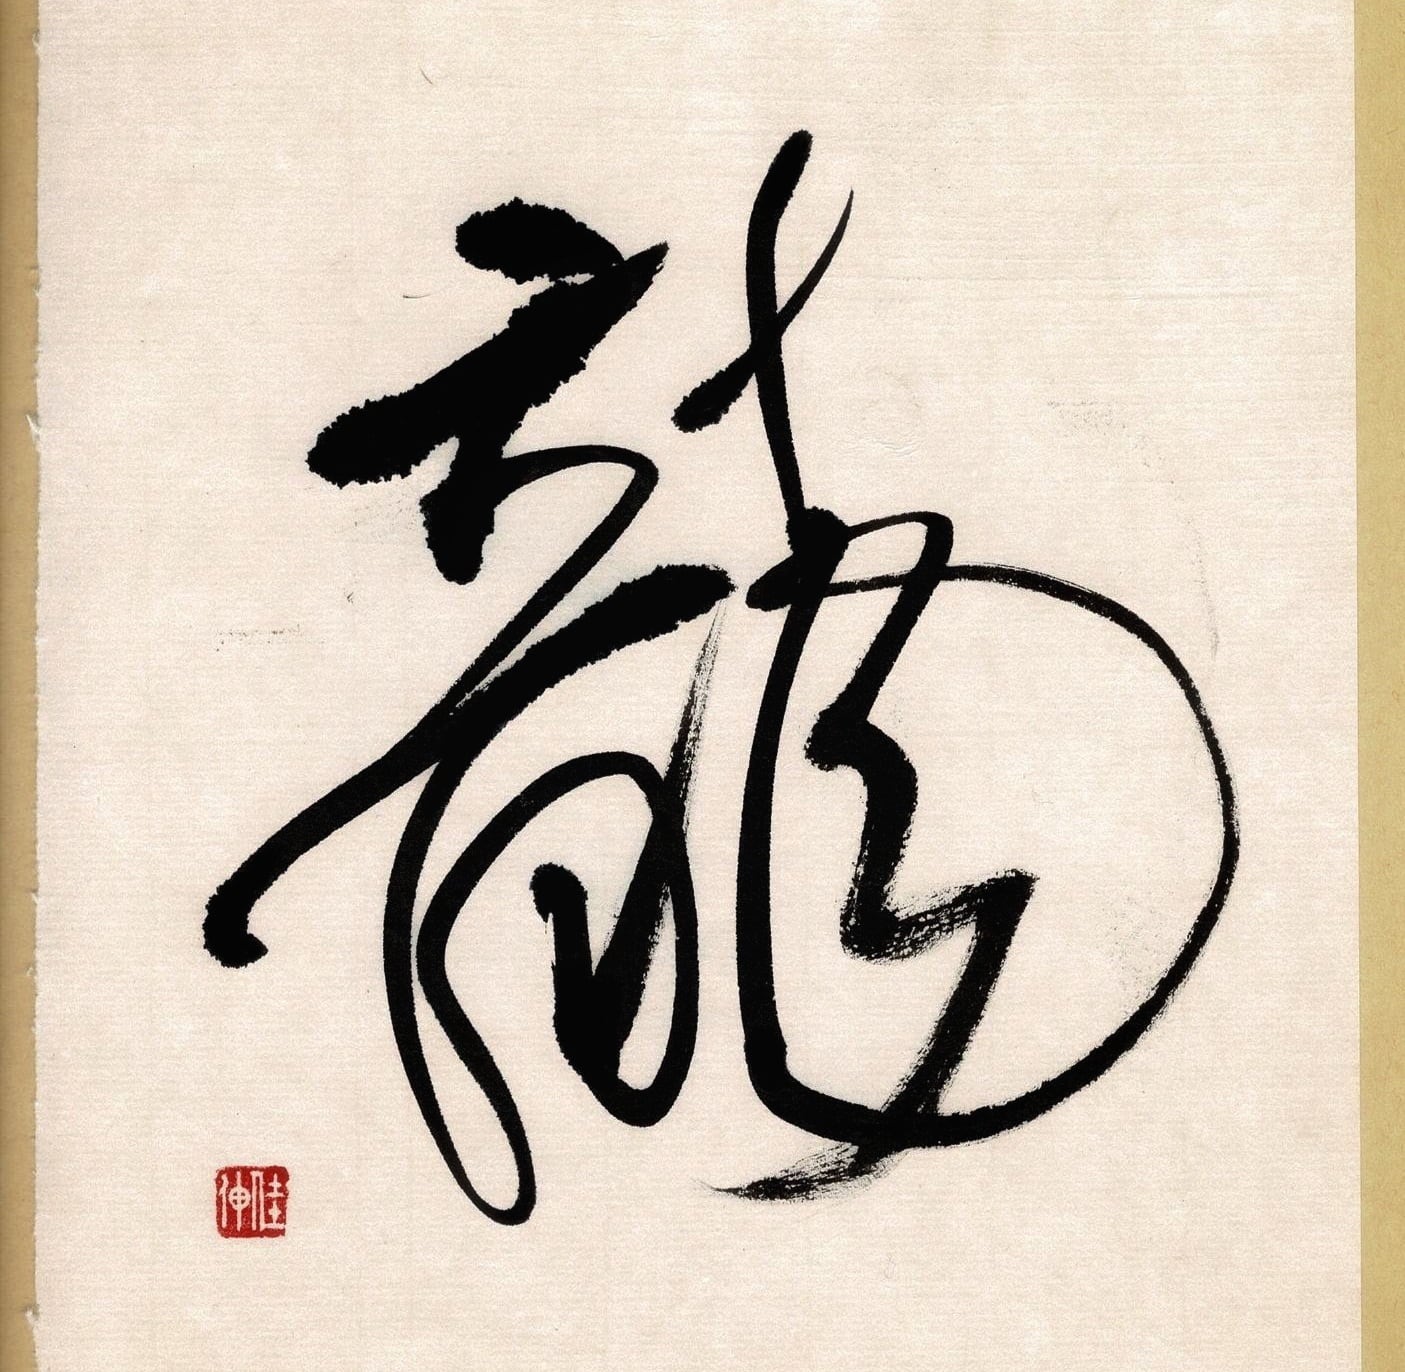 龍
佳伸